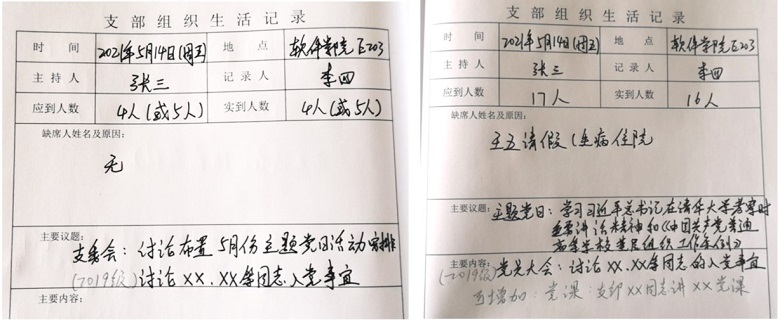 支部组织生活记录
时间 2021年5月14日(周五) 地点 软件学院E203
主持人 张三 记录人 李四
应到人数 4人(或5人) 实到人数 4人(或5人)
缺席人姓名及原因:
无
主要议题:
支委会：讨论布置5月份主题党日活动安排
(2019级) 讨论XX、XX等同志入党事宜
主要内容:
支部组织生活记录
时间 2021年5月14日(周五) 地点 软件学院E203
主持人 张三 记录人 李四
应到人数 17人 实到人数 16人
缺席人姓名及原因:
王五请假(生病住院
主要议题:
主题党日：学习习近平总书记在清华大学考察时
重要讲话精神和《中国共产党普通
高等学校基层组织工作条例》
主要内容:
(2019级) 党员大会：讨论XX、XX等同志的入党事宜
可增加：党课：支部XX同志讲XX党课